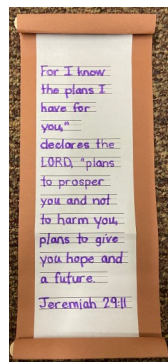 For I know
the plans I
have for
you,"
declares the
LORD, "plans
to prosper
you and not
to harm you,
plans to give
you hope and
a future.
Jeremiah 29:11